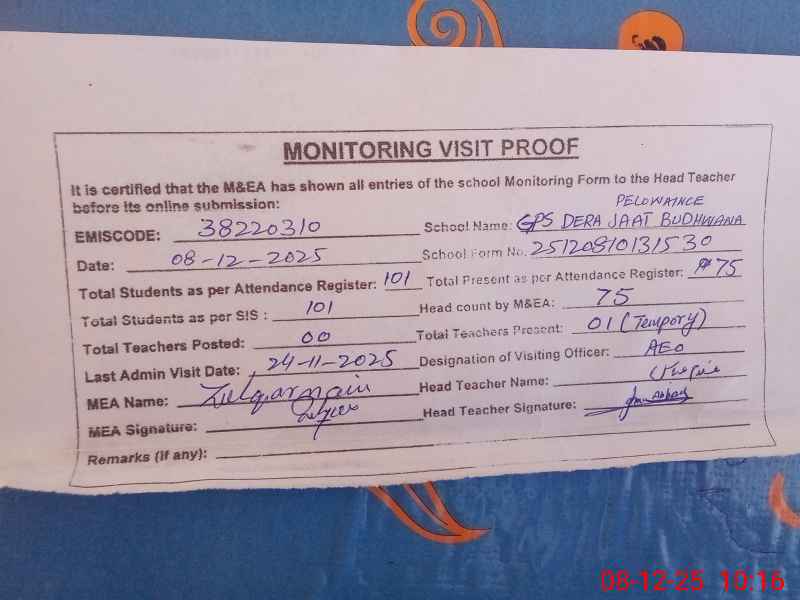 MONITORING VISIT PROOF
It is certified that the M&EA has shown all entries of the school Monitoring Form to the Head Teacher
before its online submission:
EMISCODE: 38220310
School Name: GPS DERA JAAT BUDHWANA PELOWAINCE
Date: 08-12-2025
School Form No. 25120810131530
Total Students as per Attendance Register: 101
Total Present as per Attendance Register: 75
Total Students as per SIS : 101
Head count by M&EA: 75
Total Teachers Posted: 00
Total Teachers Present: 01 (Tempory)
Last Admin Visit Date: 24-11-2025
Designation of Visiting Officer: AEO
MEA Name: Zulqarnain
Head Teacher Name:
MEA Signature:
Head Teacher Signature:
Remarks (if any):
08-12-25 10:16